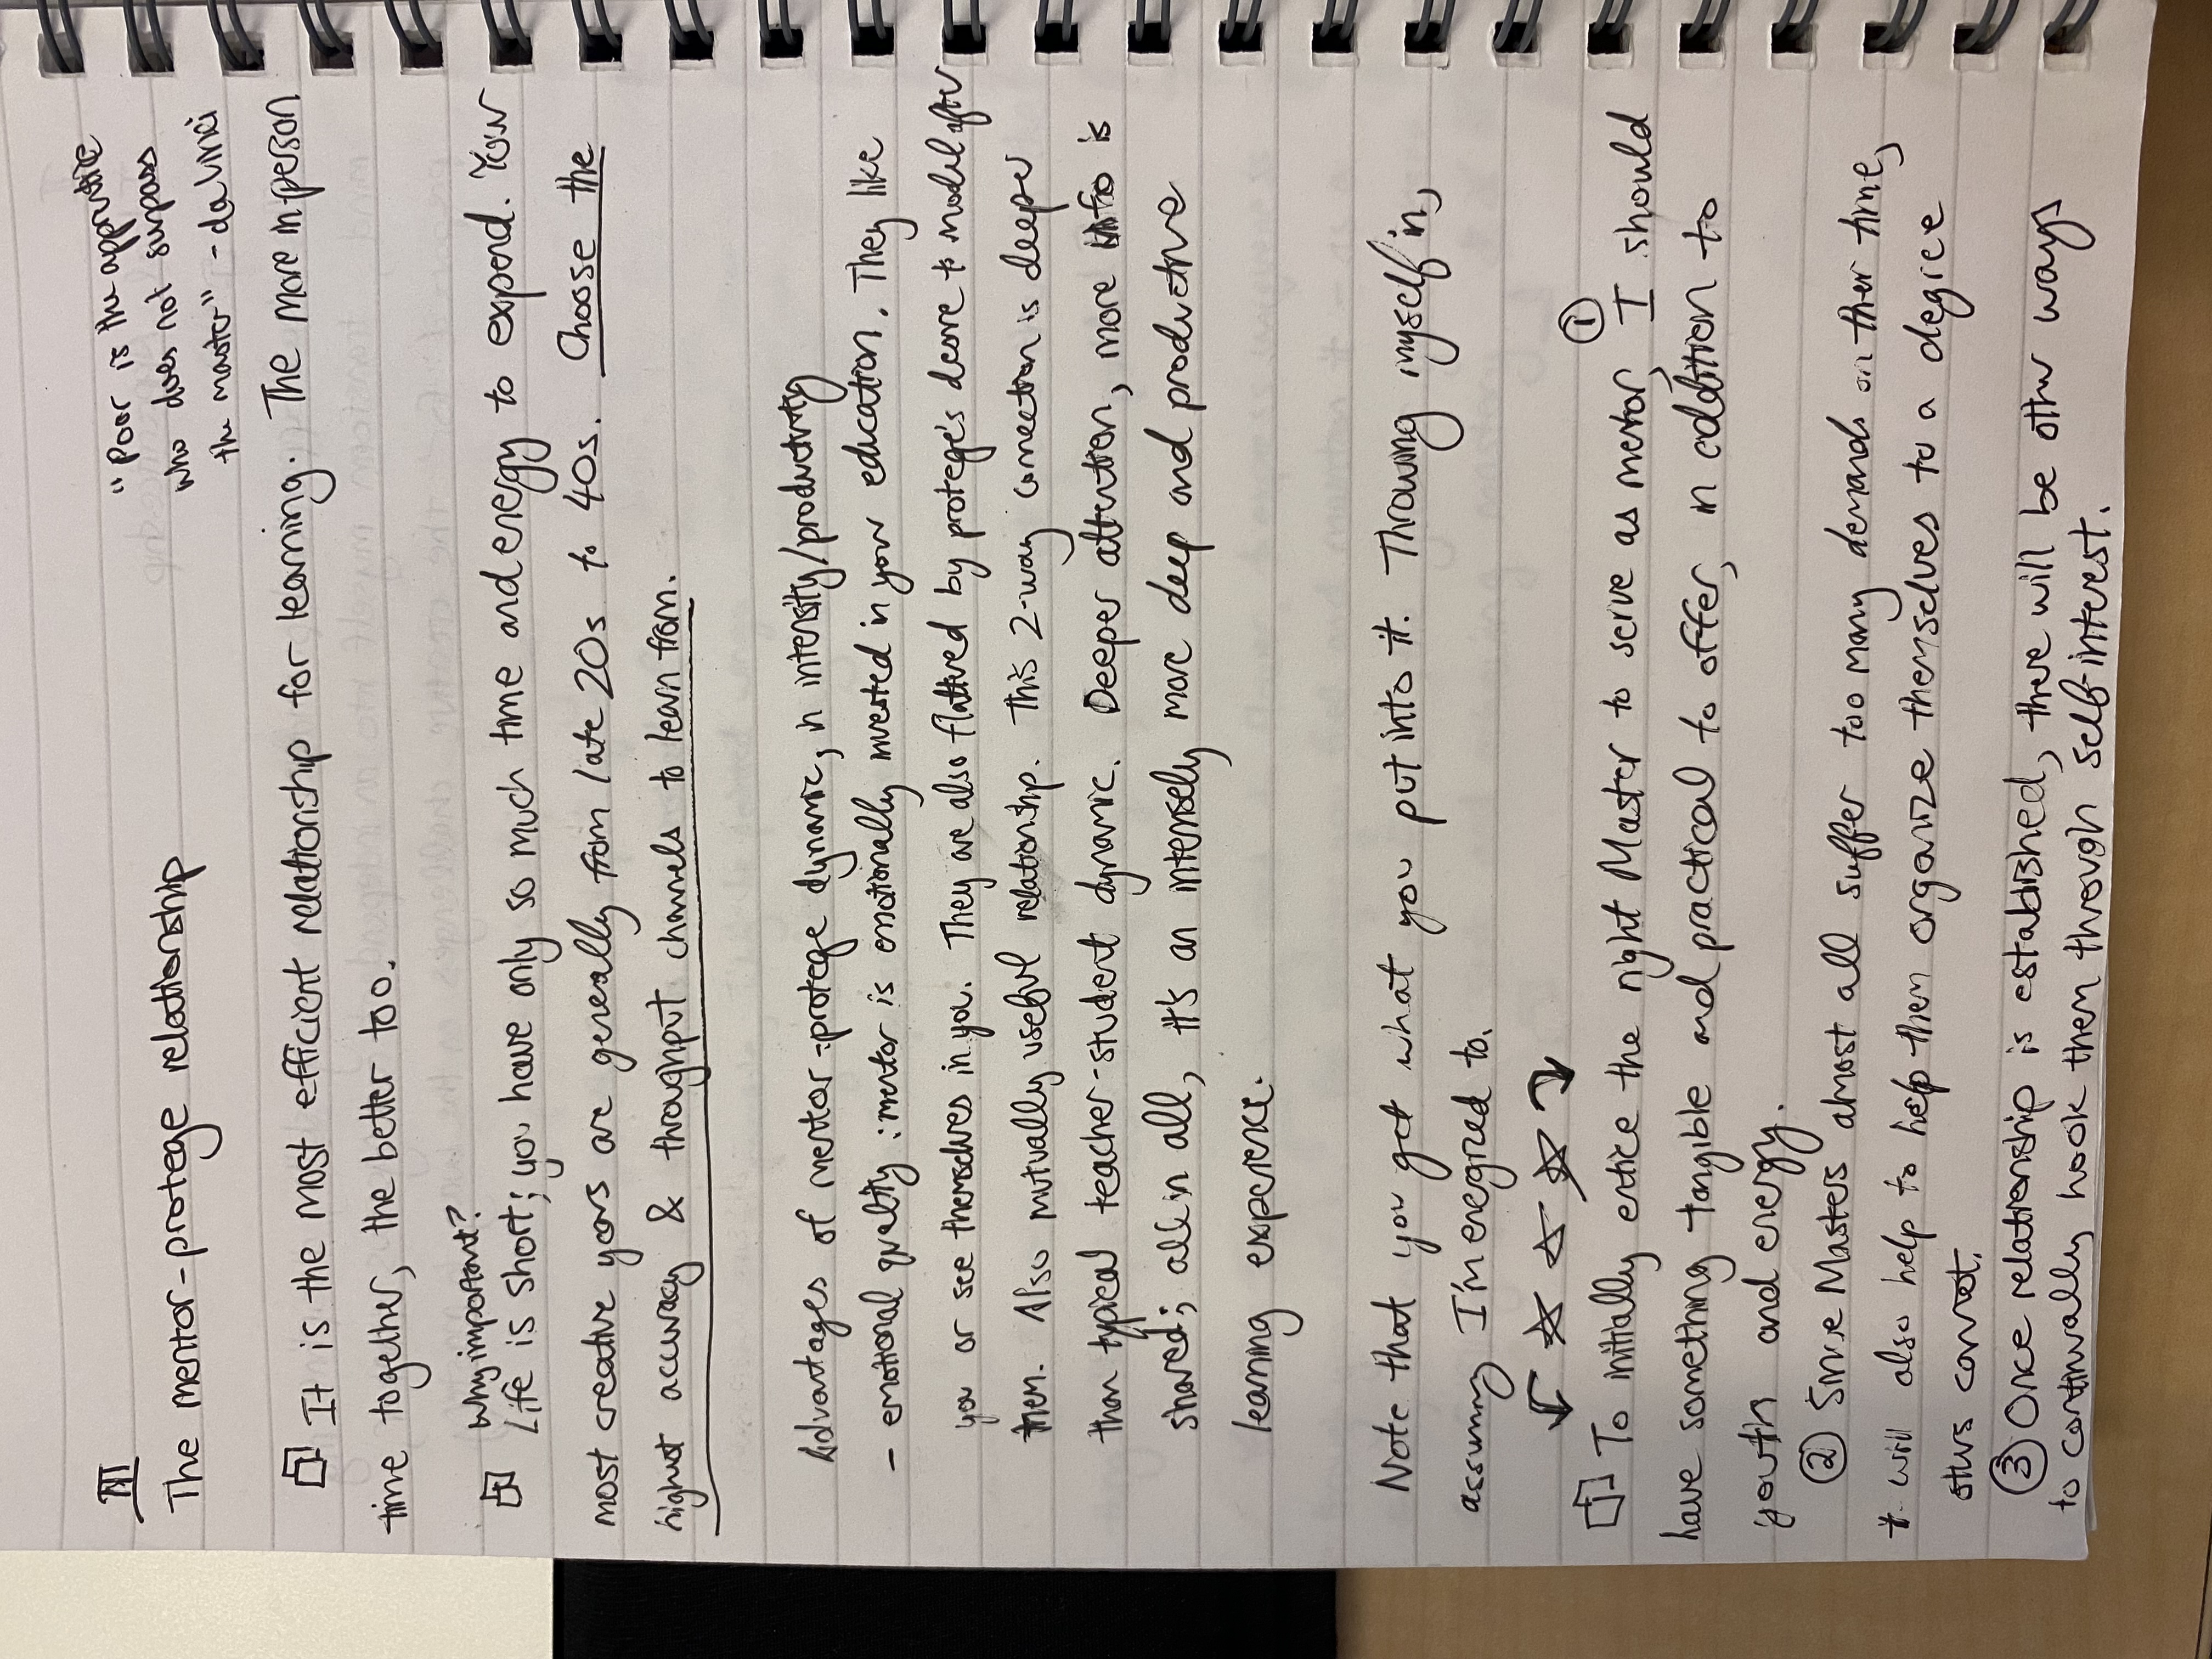 III
The mentor-protege relationship
"Poor is the apprentice
who does not surpass
the master" - da Vinci
It is the most efficient relationship for learning. The more in-person
time together, the better too.
Why important?
Life is short; you have only so much time and energy to expend. Your
most creative years are generally from late 20s to 40s. Choose the
highest accuracy & throughput channels to learn from.
Advantages of mentor-protege dynamic, in intensity/productivity
- emotional quality : mentor is emotionally invested in your education. They like
you or see themselves in you. They are also flattered by protege's desire to model after
them. Also mutually useful relationship. This 2-way connection is deeper
than typical teacher-student dynamic. Deeper attention, more info is
shared; all in all, it's an intensely more deep and productive
learning experience.
Note that you get what you put into it. Throwing myself in,
assuming I'm energized to.
① To initially entice the right Master to serve as mentor, I should
have something tangible and practical to offer, in addition to
youth and energy.
② Since Masters almost all suffer too many demands on their time,
it will also help to help them organize themselves to a degree
others cannot.
③ Once relationship is established, there will be other ways
to continually hook them through self-interest.